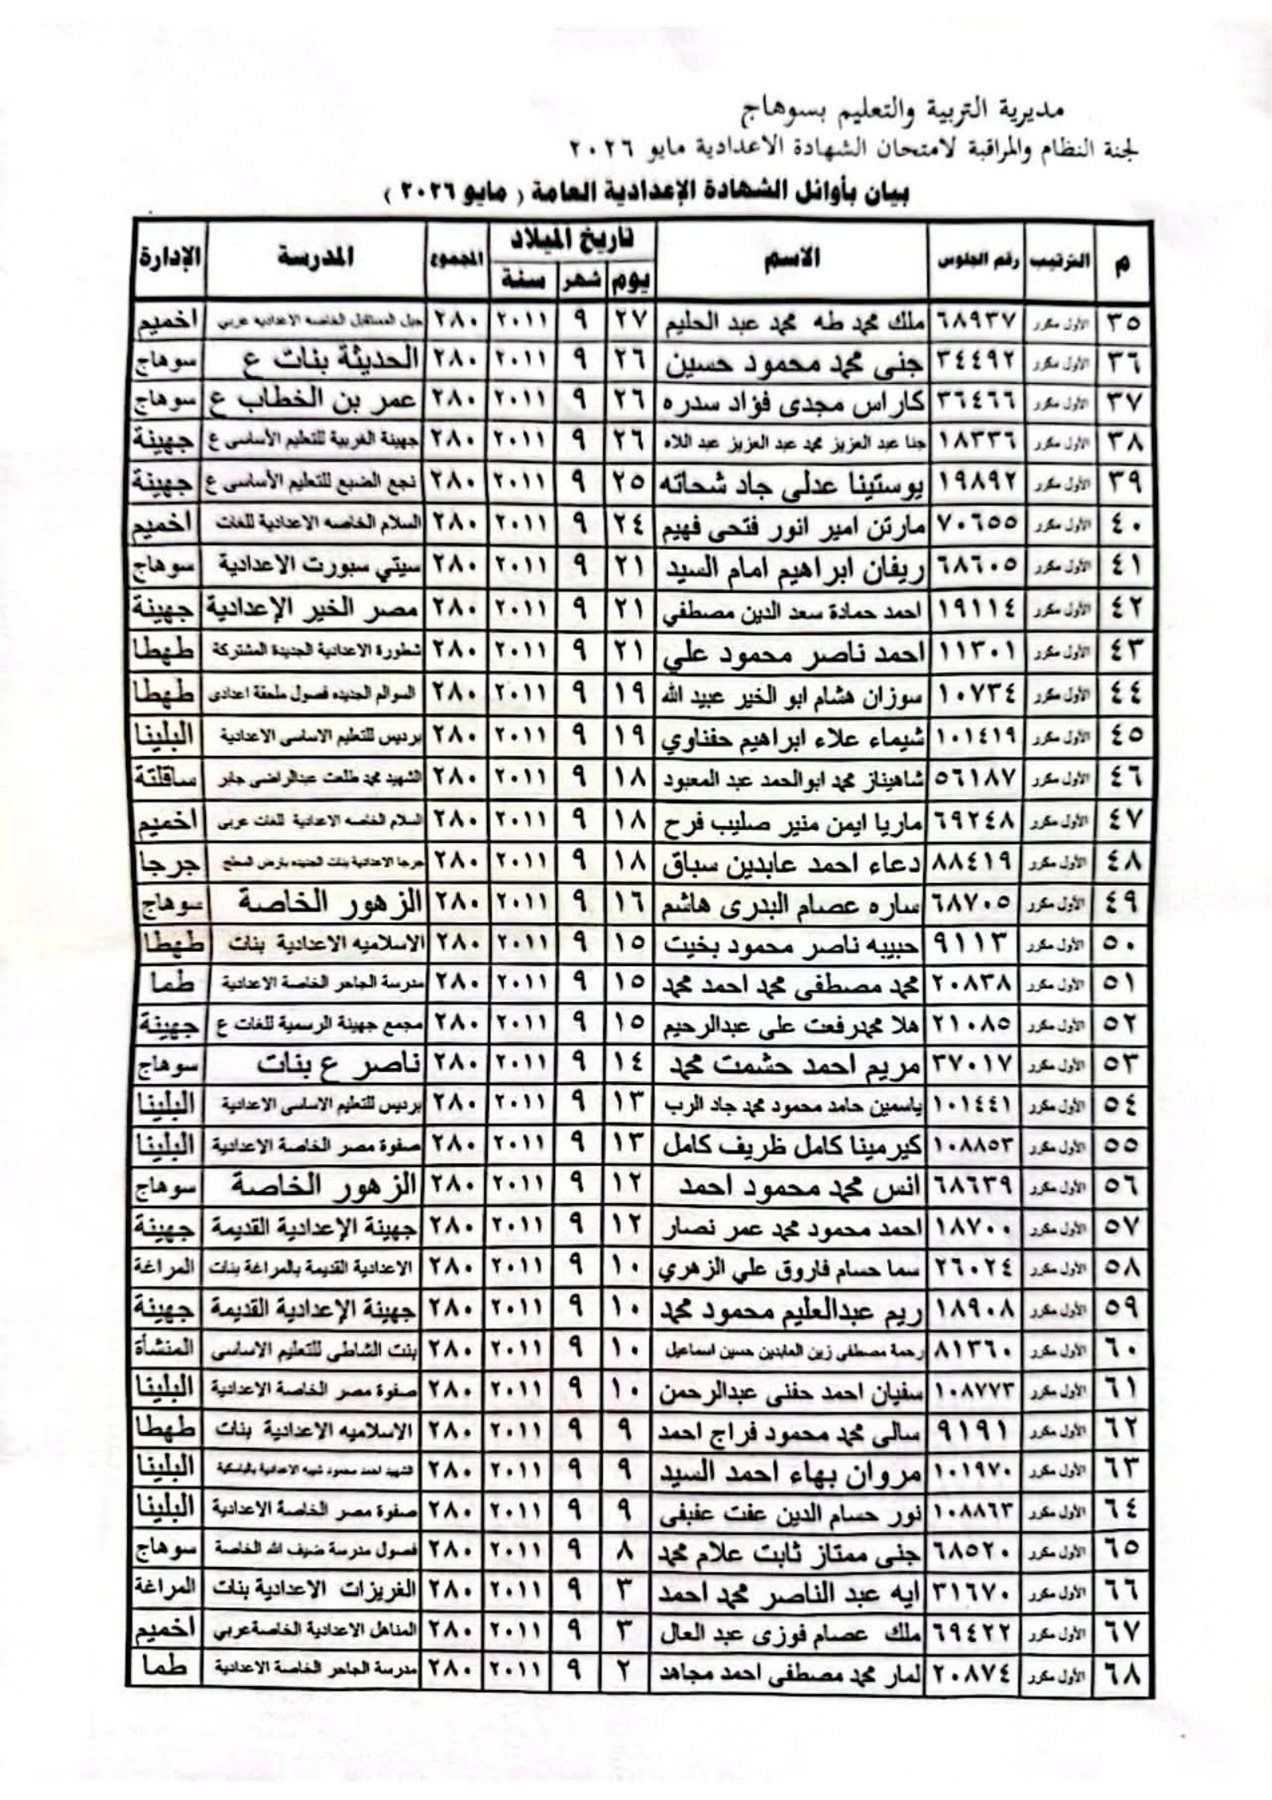 مديرية التربية والتعليم بسوهاج
لجنة النظام والمراقبة لامتحان الشهادة الاعدادية مايو ٢٠٢٦
بيان بأوائل الشهادة الإعدادية العامة ( مايو ٢٠٢٦ )
م الترتيب رقم الجلوس الاسم تاريخ الميلاد المجموع المدرسة الإدارة
يوم شهر سنة
٣٥ الأول مكرر ٦٨٩٣٧ ملك محمد طه محمد عبد الحليم ٢٧ ٩ ٢٠١١ ٢٨٠ جيل المستقبل الخاصه الاعدادية عربي اخميم
٣٦ الأول مكرر ٣٤٤٩٢ جنى محمد محمود حسين ٢٦ ٩ ٢٠١١ ٢٨٠ الحديثة بنات ع سوهاج
٣٧ الأول مكرر ٣٦٤٦٦ كاراس مجدى فؤاد سدره ٢٦ ٩ ٢٠١١ ٢٨٠ عمر بن الخطاب ع سوهاج
٣٨ الأول مكرر ١٨٣٣٦ جنا عبد العزيز محمد عبد العزيز عبد اللاه ٢٦ ٩ ٢٠١١ ٢٨٠ جهينة الغربية للتعليم الأساسى ع جهينة
٣٩ الأول مكرر ١٩٨٩٢ يوستينا عدلى جاد شحاته ٢٥ ٩ ٢٠١١ ٢٨٠ نجع الضبع للتعليم الأساسى ع جهينة
٤٠ الأول مكرر ٧٠٦٥٥ مارتن امير انور فتحى فهيم ٢٤ ٩ ٢٠١١ ٢٨٠ السلام الخاصه الاعدادية للغات اخميم
٤١ الأول مكرر ٦٨٦٠٥ ريفان ابراهيم امام السيد ٢١ ٩ ٢٠١١ ٢٨٠ سيتي سبورت الاعدادية سوهاج
٤٢ الأول مكرر ١٩١١٤ احمد حمادة سعد الدين مصطفي ٢١ ٩ ٢٠١١ ٢٨٠ مصر الخير الإعدادية جهينة
٤٣ الأول مكرر ١١٣٠١ احمد ناصر محمود علي ٢١ ٩ ٢٠١١ ٢٨٠ شطورة الاعدادية الجديدة المشتركة طهطا
٤٤ الأول مكرر ١٠٧٣٤ سوزان هشام ابو الخير عبيد الله ١٩ ٩ ٢٠١١ ٢٨٠ السوالم الجديده فصول ملحقة اعدادى طهطا
٤٥ الأول مكرر ١٠١٤١٩ شيماء علاء ابراهيم حفناوي ١٩ ٩ ٢٠١١ ٢٨٠ برديس للتعليم الاساسى الاعدادية البلينا
٤٦ الأول مكرر ٥٦١٨٧ شاهيناز محمد ابوالحمد عبد المعبود ١٨ ٩ ٢٠١١ ٢٨٠ الشهيد محمد طلعت عبدالراضى جابر ساقلتة
٤٧ الأول مكرر ٦٩٢٤٨ ماريا ايمن منير صليب فرح ١٨ ٩ ٢٠١١ ٢٨٠ السلام الخاصه الاعدادية للغات عربى اخميم
٤٨ الأول مكرر ٨٨٤١٩ دعاء احمد عابدين سباق ١٨ ٩ ٢٠١١ ٢٨٠ جرجا الاعدادية بنات الجديده بارض المطبع جرجا
٤٩ الأول مكرر ٦٨٧٠٥ ساره عصام البدرى هاشم ١٦ ٩ ٢٠١١ ٢٨٠ الزهور الخاصة سوهاج
٥٠ الأول مكرر ٩١١٣ حبيبه ناصر محمود بخيت ١٥ ٩ ٢٠١١ ٢٨٠ الاسلاميه الاعدادية بنات طهطا
٥١ الأول مكرر ٢٠٨٣٨ محمد مصطفى محمد احمد محمد ١٥ ٩ ٢٠١١ ٢٨٠ مدرسة الجاحر الخاصة الاعدادية طما
٥٢ الأول مكرر ٢١٠٨٥ هلا محمدرفعت على عبدالرحيم ١٥ ٩ ٢٠١١ ٢٨٠ مجمع جهينة الرسمية للغات ع جهينة
٥٣ الأول مكرر ٣٧٠١٧ مريم احمد حشمت محمد ١٤ ٩ ٢٠١١ ٢٨٠ ناصر ع بنات سوهاج
٥٤ الأول مكرر ١٠١٤٤١ ياسمين حامد محمود محمد جاد الرب ١٣ ٩ ٢٠١١ ٢٨٠ برديس للتعليم الاساسى الاعدادية البلينا
٥٥ الأول مكرر ١٠٨٨٥٣ كيرمينا كامل ظريف كامل ١٣ ٩ ٢٠١١ ٢٨٠ صفوة مصر الخاصة الاعدادية البلينا
٥٦ الأول مكرر ٦٨٦٣٩ انس محمد محمود احمد ١٢ ٩ ٢٠١١ ٢٨٠ الزهور الخاصة سوهاج
٥٧ الأول مكرر ١٨٧٠٠ احمد محمود محمد عمر نصار ١٢ ٩ ٢٠١١ ٢٨٠ جهينة الإعدادية القديمة جهينة
٥٨ الأول مكرر ٢٦٠٢٤ سما حسام فاروق علي الزهري ١٠ ٩ ٢٠١١ ٢٨٠ الاعدادية القديمة بالمراغة بنات المراغة
٥٩ الأول مكرر ١٨٩٠٨ ريم عبدالعليم محمود محمد ١٠ ٩ ٢٠١١ ٢٨٠ جهينة الإعدادية القديمة جهينة
٦٠ الأول مكرر ٨١٣٦٠ رحمة مصطفى زين العابدين حسين اسماعيل ١٠ ٩ ٢٠١١ ٢٨٠ بنت الشاطى للتعليم الاساسى المنشأة
٦١ الأول مكرر ١٠٨٧٧٣ سفيان احمد حفنى عبدالرحمن ١٠ ٩ ٢٠١١ ٢٨٠ صفوة مصر الخاصة الاعدادية البلينا
٦٢ الأول مكرر ٩١٩١ سالى محمد محمود فراج احمد ٩ ٩ ٢٠١١ ٢٨٠ الاسلاميه الاعدادية بنات طهطا
٦٣ الأول مكرر ١٠١٩٧٠ مروان بهاء احمد السيد ٩ ٩ ٢٠١١ ٢٨٠ الشهيد احمد محمود شيبه الاعدادية البلينا
٦٤ الأول مكرر ١٠٨٨٦٣ نور حسام الدين عفت عفيفى ٩ ٩ ٢٠١١ ٢٨٠ صفوة مصر الخاصة الاعدادية البلينا
٦٥ الأول مكرر ٦٨٥٢٠ جنى ممتاز ثابت علام محمد ٨ ٩ ٢٠١١ ٢٨٠ فصول مدرسة ضيف الله الخاصة سوهاج
٦٦ الأول مكرر ٣١٦٧٠ ايه عبد الناصر محمد احمد ٣ ٩ ٢٠١١ ٢٨٠ الغريزات الاعدادية بنات المراغة
٦٧ الأول مكرر ٦٩٤٢٢ ملك عصام فوزى عبد العال ٣ ٩ ٢٠١١ ٢٨٠ المناهل الاعدادية الخاصة عربي اخميم
٦٨ الأول مكرر ٢٠٨٧٤ لمار محمد مصطفى احمد مجاهد ٢ ٩ ٢٠١١ ٢٨٠ مدرسة الجاحر الخاصة الاعدادية طما